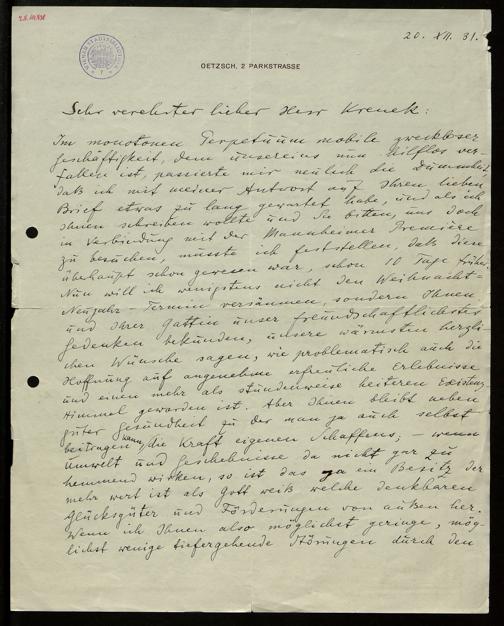 20. XII. 31.
OETZSCH, 2 PARKSTRASSE
Sehr verehrter lieber Herr Krenek:
Im monotonen Perpetuum mobile zweckloser
Geschäftigkeit, dem unsereins nun hilflos ver-
fallen ist, passierte mir neulich die Dummheit,
daß ich mit meiner Antwort auf Ihren lieben
Brief etwas zu lang gewartet habe, und als ich
Ihnen schreiben wollte und Sie bitten, uns doch
in Verbindung mit der Mannheimer Premiere
zu besuchen, musste ich feststellen, daß diese
überhaupt schon gewesen war, schon 10 Tage früher.
Nun will ich wenigstens nicht den Weihnacht-
Neujahr-Termin versäumen, sondern Ihnen
und Ihrer Gattin unser freundschaftlichstes
Gedenken bekunden, unsere wärmsten herzli-
chen Wünsche sagen, wie problematisch auch die
Hoffnung auf angenehme erfreuliche Erlebnisse
und einen mehr als stundenweise heiteren Existenz-
Himmel geworden ist. Aber Ihnen bleibt neben
guter Gesundheit zu der man ja auch selbst
beitragen kann, die Kraft eigenen Schaffens; – wenn
Umwelt und Geschehnisse da nicht gar zu
hemmend wirken, so ist das ja ein Besitz der
mehr wert ist als Gott weiß welche denkbaren
Glücksgüter und Förderungen von außen her.
Wenn ich Ihnen also möglichst geringe, mög-
lichst wenige tiefergehende Störungen durch den